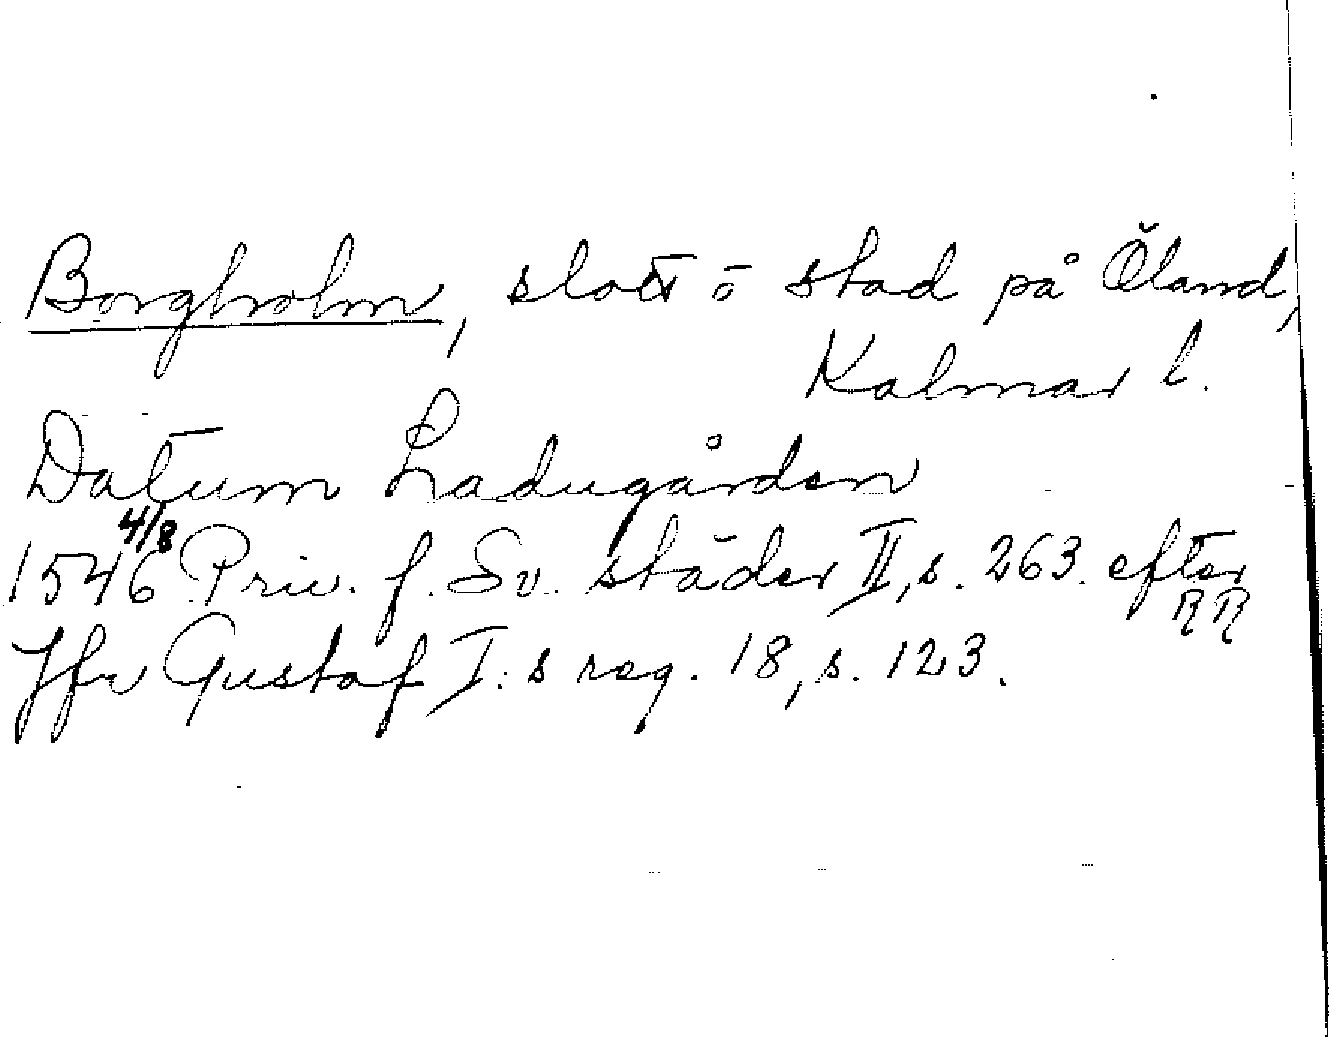 Borgholm, slott ö stad på Öland,
Kalmar l.
Datum Ladugården
1546 4/8 Priv. f. Sv. städer II, s. 263. efter RR
Jfr Gustaf I:s reg. 18, s. 123.